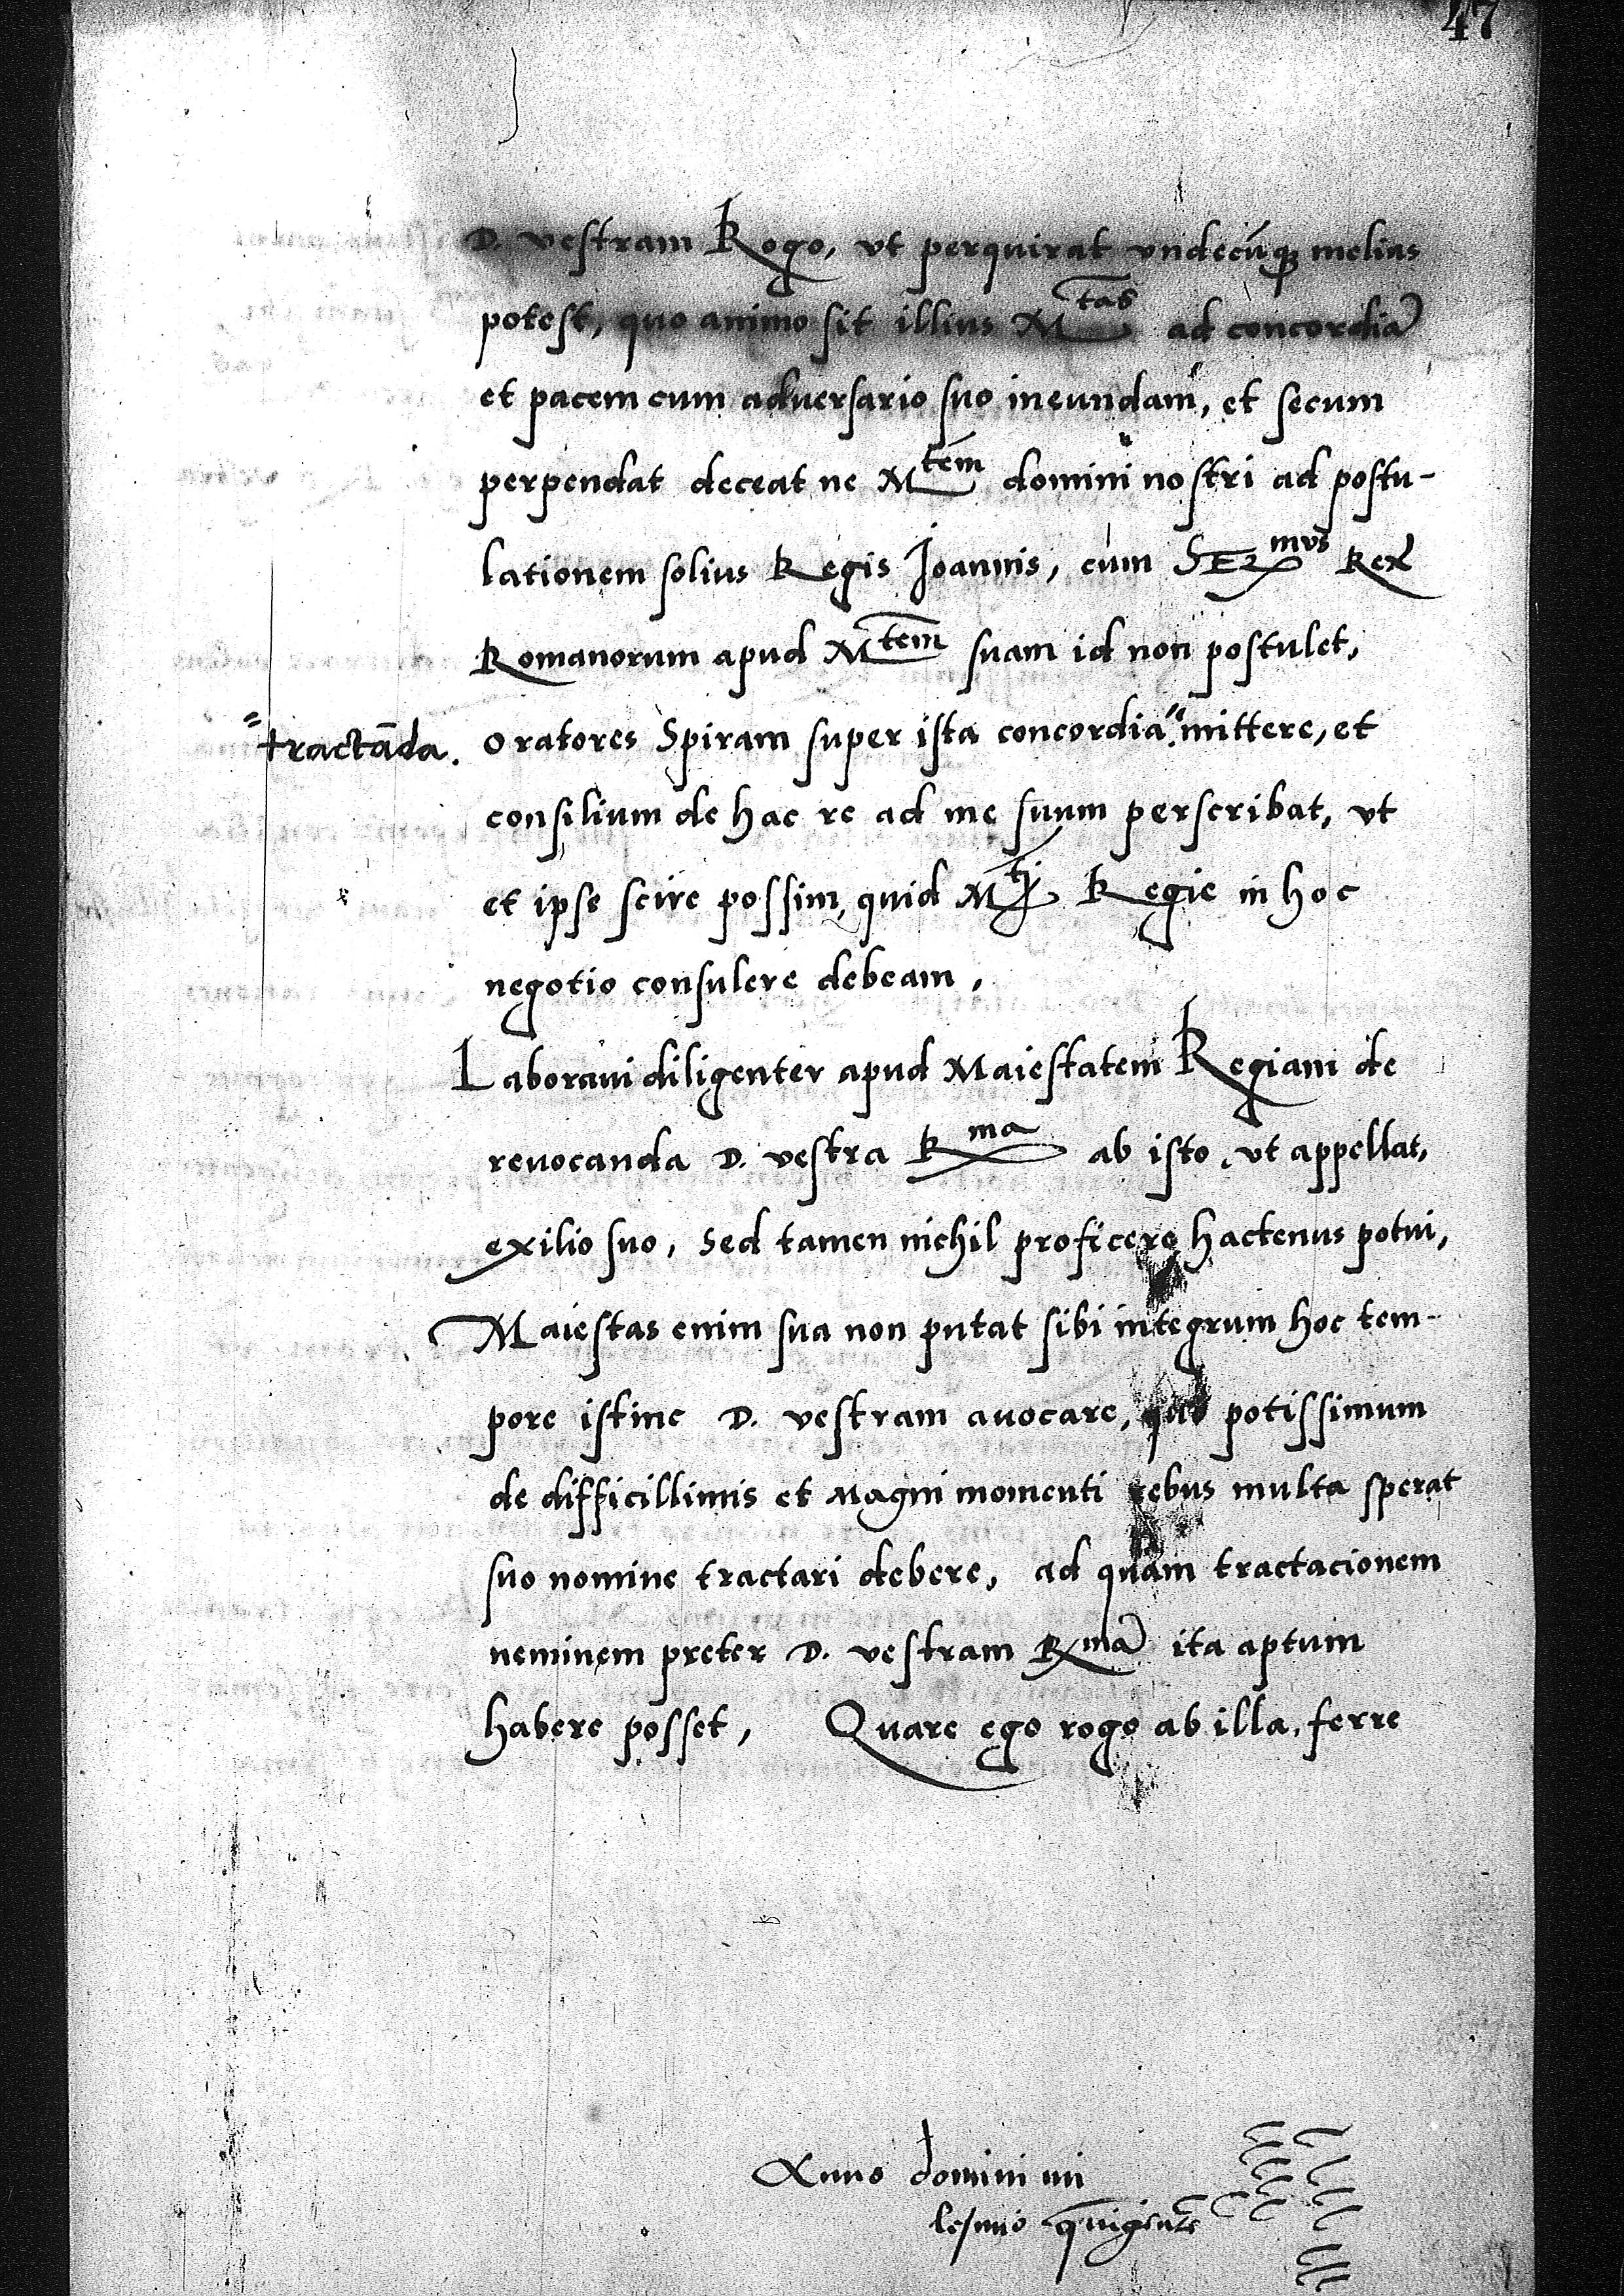 47
D. vestram Rogo, vt perquirat vndecūq₃ melius
potest, quo animo sit illius M^tas ad concordiã
et pacem cum aduersario suo ineundam, et secum
perpendat deceat ne M^tem domini nostri ad postu-
lationem solius Regis Joannis, cum SEr^mvs Rex
Romanorum apud M^tem suam id non postulet,
oratores Spiram super ista concordia " mittere, et
"tractāda.
consilium de hac re ad me suum perscribat, vt
et ipse scire possim, quid M^tj Regie in hoc
negotio consulere debeam,
Laboraui diligenter apud Maiestatem Regiam de
reuocanda D. vestra R^ma ab isto, vt appellat,
exilio suo, Sed tamen nichil proficere hactenus potui,
Maiestas enim sua non putat sibi integrum hoc tem-
pore istinc D. vestram auocare, quo potissimum
de difficillimis et Magni momenti rebus multa sperat
suo nomine tractari debere, ad quam tractacionem
neminem preter D. vestram R^mã ita aptum
habere posset, Quare ego rogo ab illa, ferre
Anno domini mi
lesimo